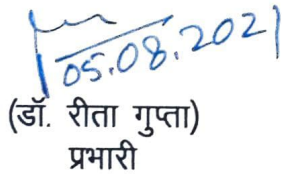 05.08.2021
(डॉ. रीता गुप्ता)
प्रभारी